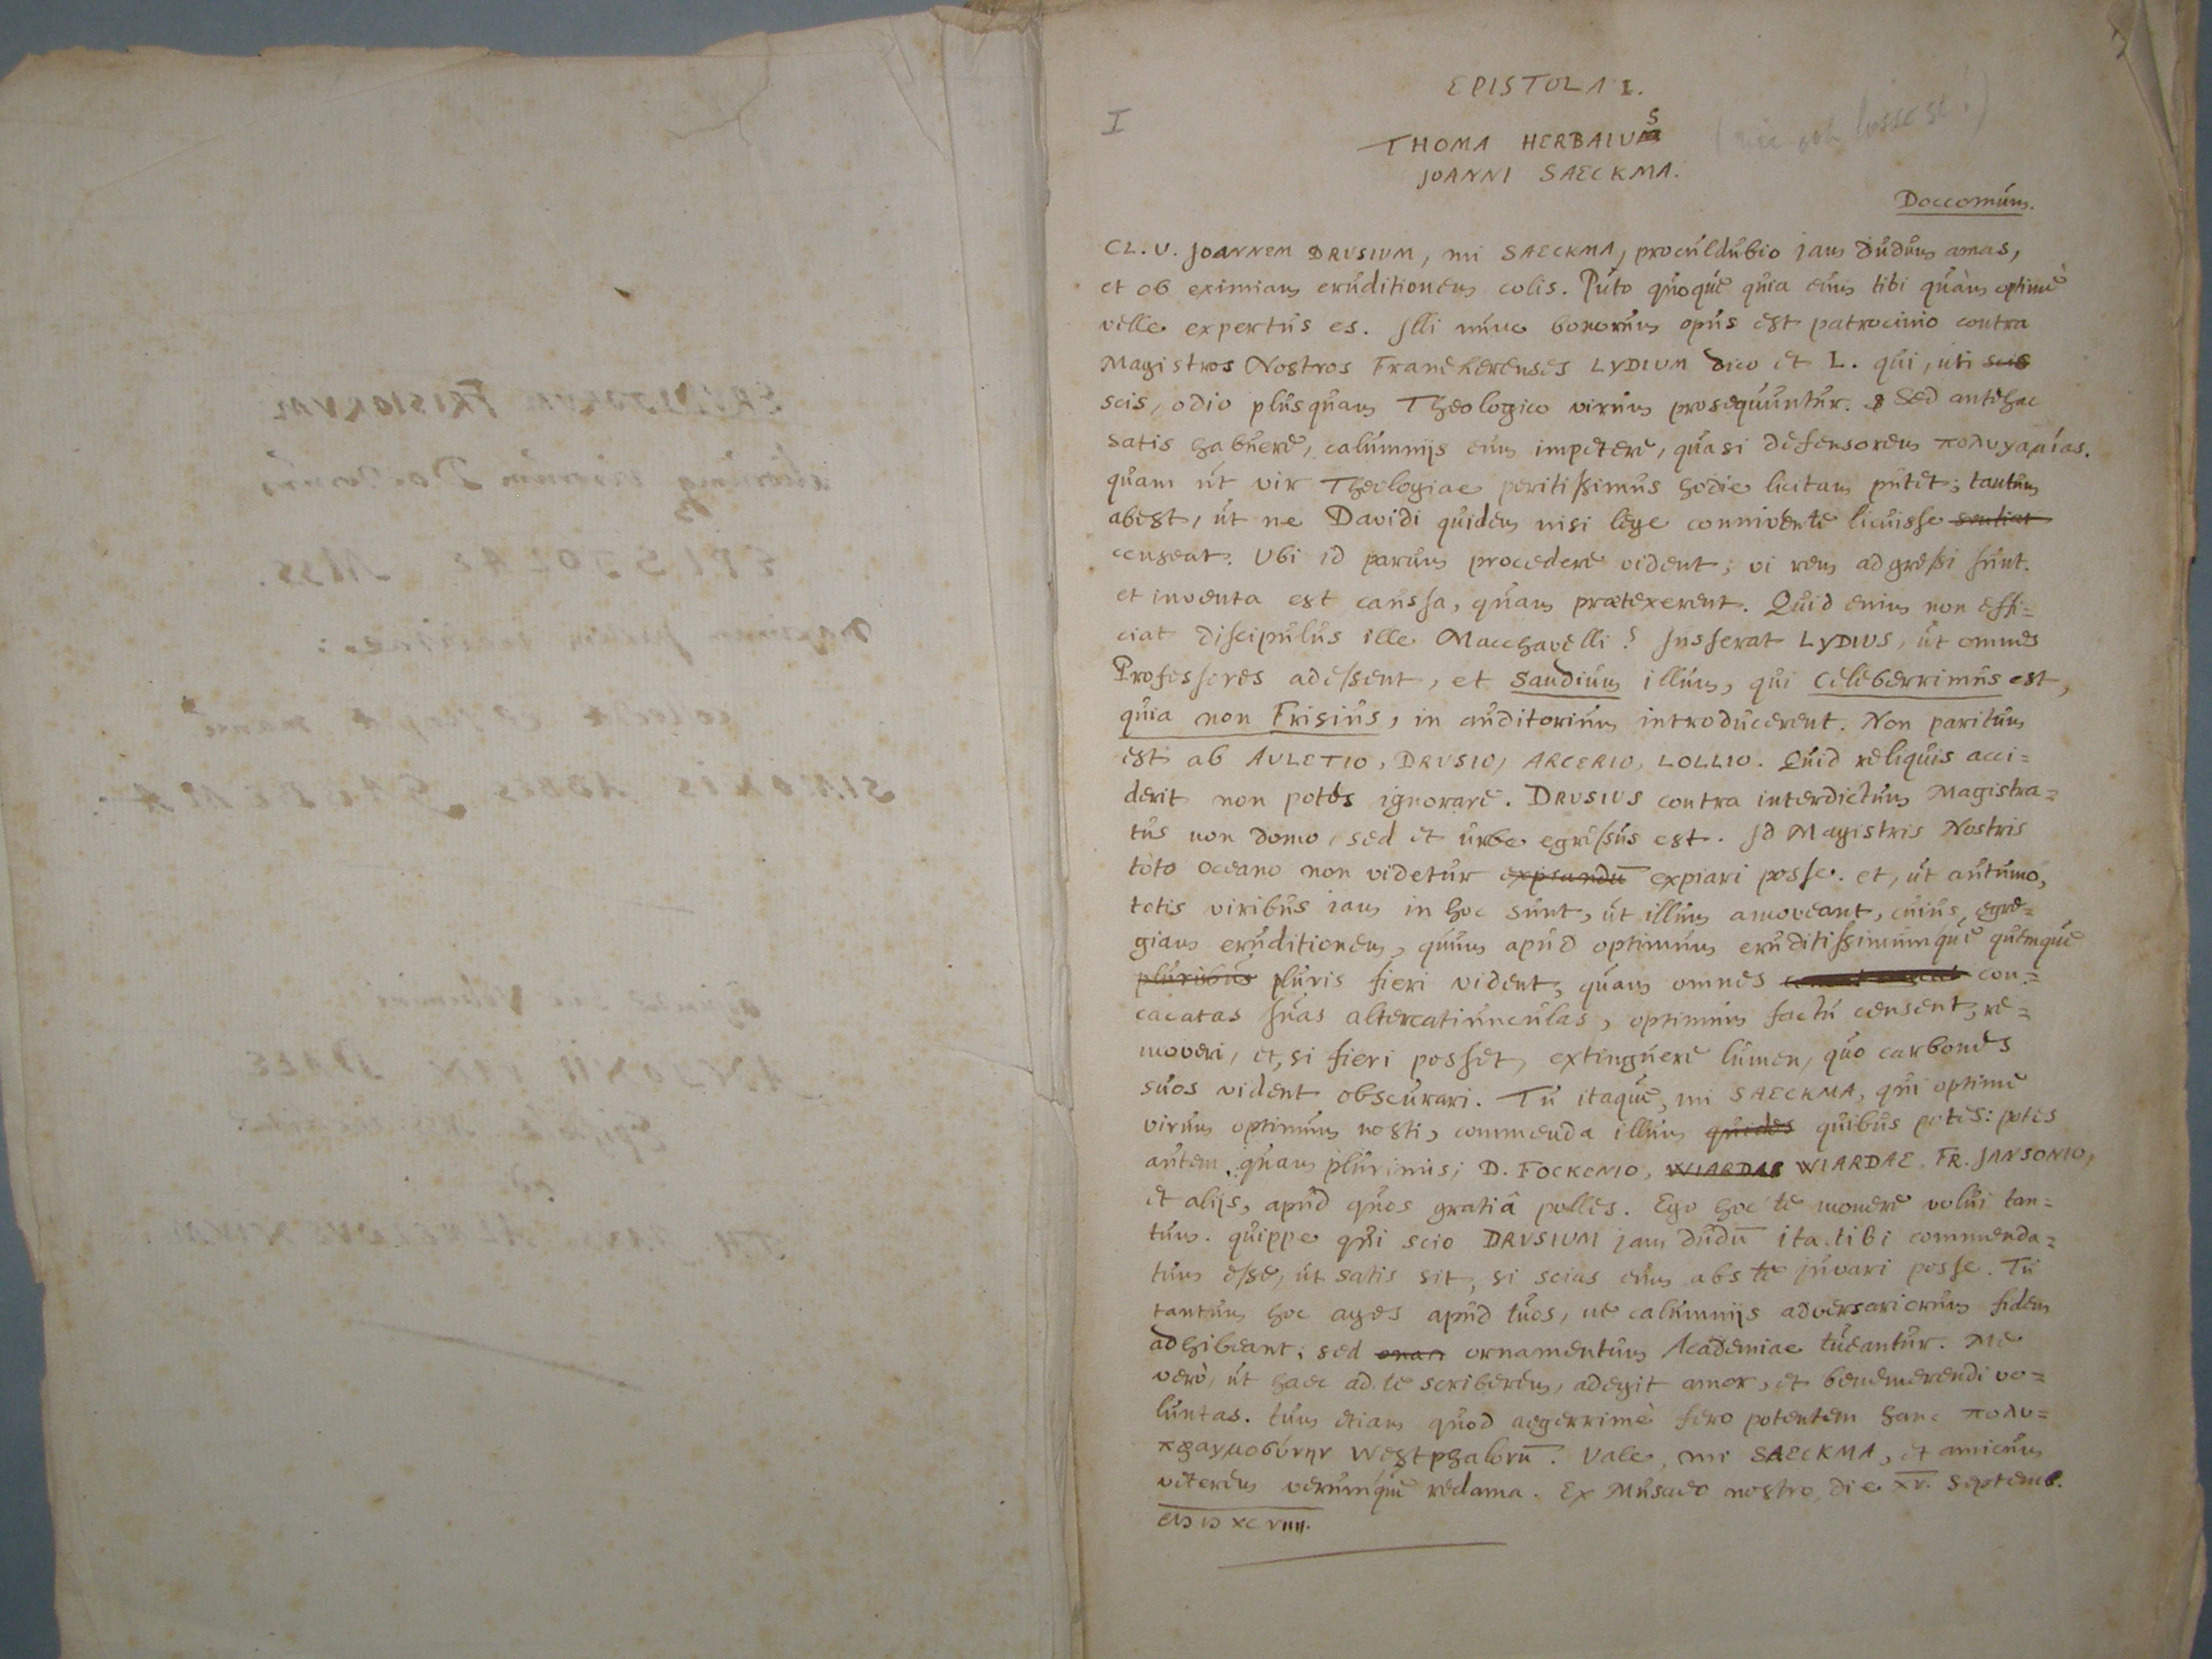 EPISTOLA I.
I
THOMA HERBAIUS
JOANNI SAECKMA.
Doccomum.
CL. V. JOANNEM DRUSIUM, mi SAECKMA, proculdubio jam dudum amas,
et ob eximiam eruditionem colis. Puto quoque quia eum tibi quàm optimè
velle expertus es. Illi nunc bonorum opus est patrocinio contra
Magistros Nostros Franekerenses LYDIUM dico et L. qui, uti scis
scis, odio plusquam Theologico virum prosequuntur. Sed antehac
satis habuere, calumnijs eum impetere, quasi defensorem πολυγαμίας.
quam ut vir Theologiae peritissimus hodie licitam putet; tantum
abest, ut ne Davidi quidem nisi lege connivente licuisse sentiat
censeat. Ubi id parum procedere vident; vi rem adgressi sunt.
et inventa est caussa, quam praetexerent. Quid enim non effi=
ciat discipulus ille Macchavelli? Jusserat LYDIUS, ut omnes
Professores adessent, et Sandium illum, qui celeberrimus est,
quia non Frisius, in auditorium introducerent. Non paritum
est ab AULETIO, DRUSIO, ARCERIO, LOLLIO. Quid reliquis acci=
derit non potes ignorare. DRUSIUS contra interdictum Magistra=
tus non domo, sed et urbe egressus est. Id Magistris Nostris
toto Oceano non videtur expiandū expiari posse. et, ut autumo,
totis viribus iam in hoc sunt, ut illum amoveant, cuius, egre=
giam eruditionem, quum apud optimum eruditissimumque quemque
pluribus pluris fieri vident, quam omnes con=
cacatas suas altercatiunculas, optimum factu censent, re=
moveri, et, si fieri posset, extinguere lumen, quo carbones
suos vident obscurari. Tu itaque, mi SAECKMA, qui optime
virum optimum nosti, commenda illum quides quibus potes: potes
autem quam plurimis; D. FOCKENIO, WIARDAE WIARDAE, FR. JANSONIO,
et alijs, apud quos gratiâ polles. Ego hoc te monere volui tan=
tum. quippe qui scio DRUSIUM jam dudū ita tibi commenda=
tum esse, ut satis sit, si scias eum abs te juvari posse. Tu
tantum hoc ages apud tuos, ne calumnijs adversariorum fidem
adhibeant; sed onan ornamentum Academiae tueantur. Me
verò, ut haec ad te scriberem, adegit amor, et benemerendi vo=
luntas. tum etiam quod aegerrimè fero potentem hanc πολυ=
πραγμοσύνην Westphalorū. Vale, mi SAECKMA, et amicum
veterem verumque redama. Ex Musaeo nostro, die XV. Septemb.
CIƆ IƆ XC VIIII.